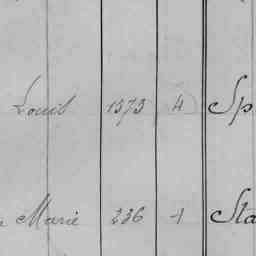 Louis 1373 4 Sp
Marie 236 -1 Sta